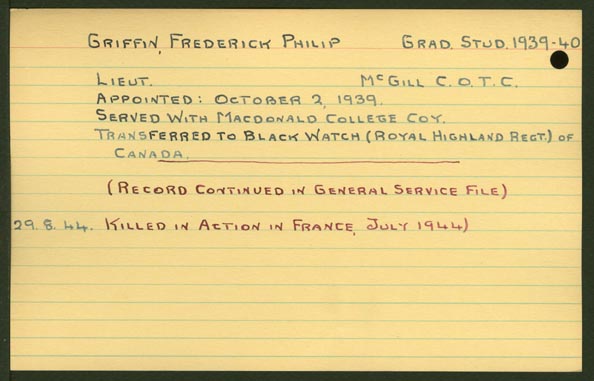 GRIFFIN, FREDERICK PHILIP GRAD. STUD. 1939-40
LIEUT. McGILL C.O.T.C.
APPOINTED: OCTOBER 2, 1939.
SERVED WITH MACDONALD COLLEGE COY.
TRANSFERRED TO BLACK WATCH (ROYAL HIGHLAND REGT.) OF
CANADA.
(RECORD CONTINUED IN GENERAL SERVICE FILE)
29.8.44. KILLED IN ACTION IN FRANCE, JULY 1944)